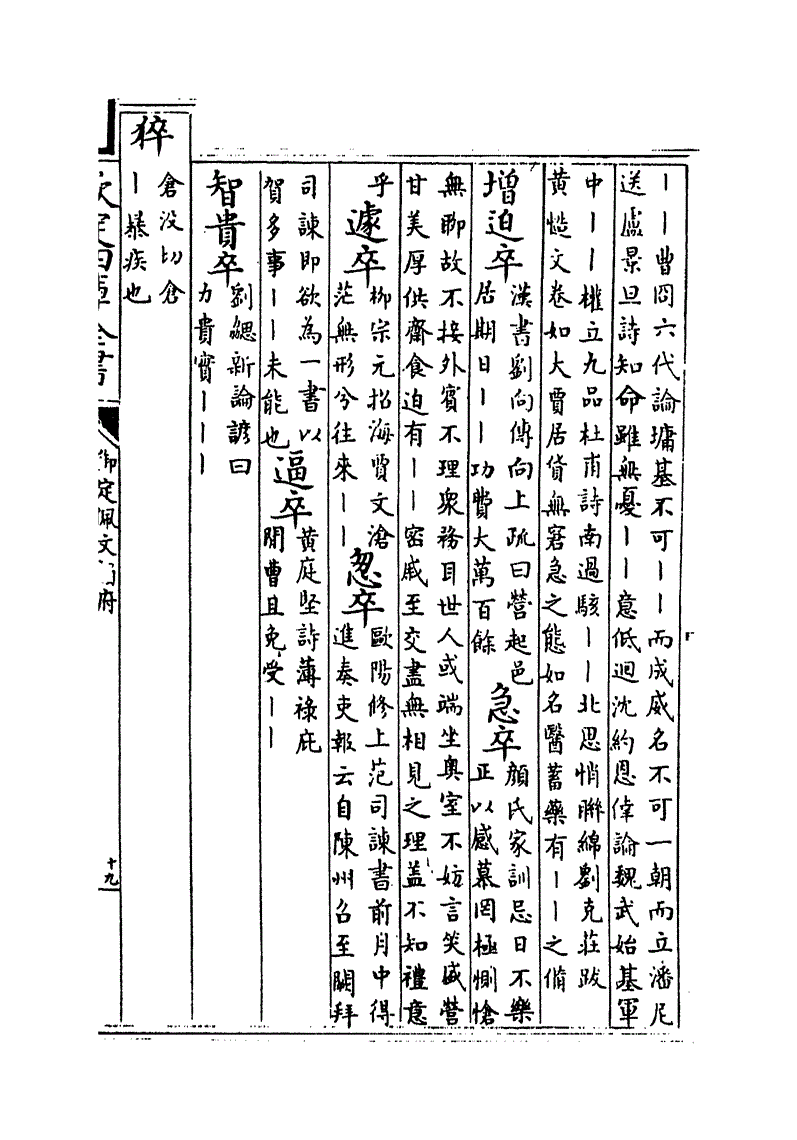 丨丨曹冏六代論墉基不可丨丨而成威名不可一朝而立潘尼
送盧景且詩知命雖無憂丨丨意低迴沈約恩倖論魏武始基軍
中丨丨權立九品杜甫詩南過駭丨丨北思悄聯綿劉克莊跋
黃慥文卷如大賈居貨無窘急之態如名醫蓄藥有丨丨之備
增迫卒
漢書劉向傳向上疏曰營起邑
居期日丨丨功費大萬百餘
急卒
顔氏家訓忌日不樂
正以感慕罔極惻愴
無聊故不接外賓不理衆務耳世人或端坐奥室不妨言笑盛營
甘美厚供齋食迫有丨丨密戚至交盡無相見之理盖不知禮意
乎
遽卒
柳宗元招海賈文滄
茫無形兮往來丨丨
怱卒
歐陽修上范司諫書前月中得
進奏吏報云自陳州召至闕拜
司諫即欲為一書以
賀多事丨丨未能也
逼卒
黄庭堅詩薄祿庇
閒曹且免受丨丨
智貴卒
劉勰新論諺曰
力貴實丨丨丨
猝
倉没切倉
丨暴疾也
欽定四庫全書
御定佩文韻府
十九